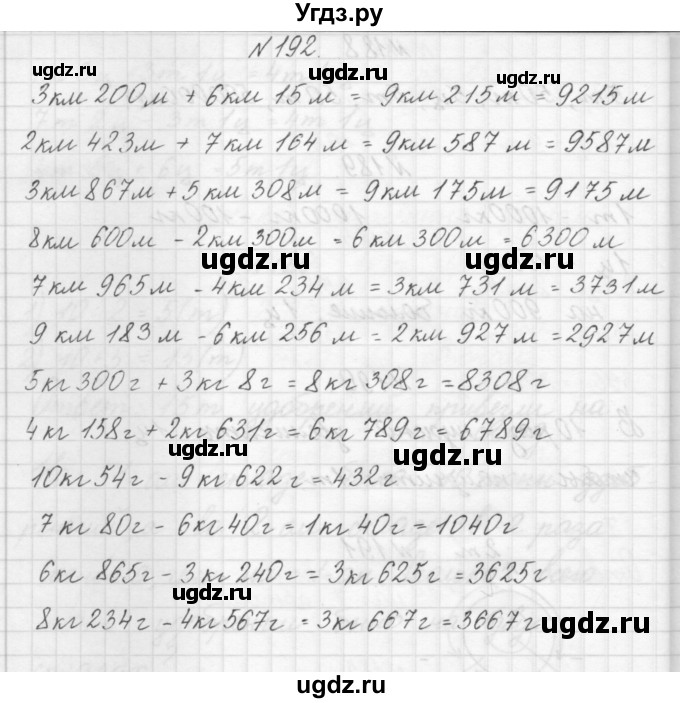 Угдз.ру
N 192.
ugdz.ru ugdz.ru
3км 200м + 6км 15м = 9км 215м = 9215м
ugdz.ru ugdz.ru
2км 423м + 7км 164м = 9км 587м = 9587м
3км 867м + 5км 308м = 9км 175м = 9175м
8км 600м - 2км 300м = 6км 300м = 6300м
ugdz.ru ugdz.ru
7км 965м - 4км 234м = 3км 731м = 3731м
9км 183м - 6км 256м = 2км 927м = 2927м
5кг 300г + 3кг 8г = 8кг 308г = 8308г
4кг 158г + 2кг 631г = 6кг 789г = 6789г
ugdz.ru ugdz.ru
10кг 54г - 9кг 622г = 432г
7кг 80г - 6кг 40г = 1кг 40г = 1040г
6кг 865г - 3кг 240г = 3кг 625г = 3625г
ugdz.ru
8кг 234г - 4кг 567г = 3кг 667г = 3667г
ugdz.ru
ugdz.ru